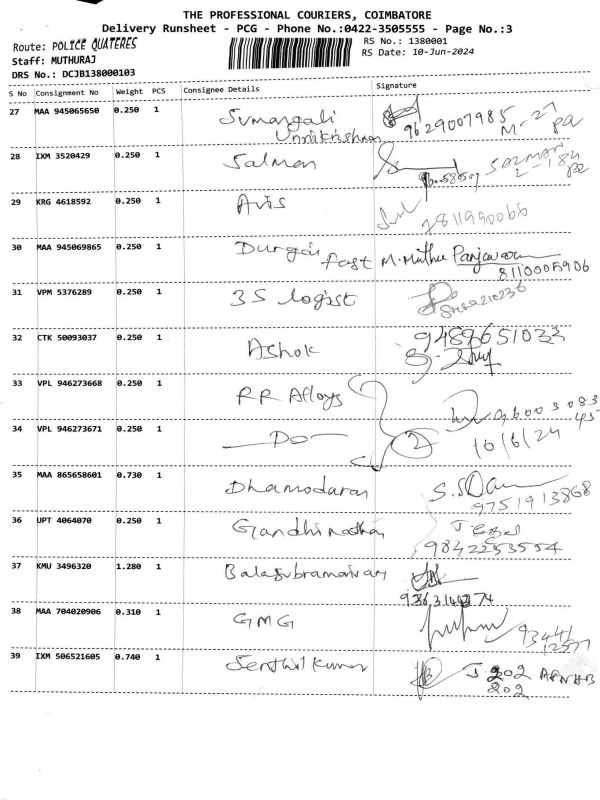 THE PROFESSIONAL COURIERS, COIMBATORE
Delivery Runsheet - PCG - Phone No.:0422-3505555 - Page No.:3
Route: POLICE QUATERES
RS No.: 1380001
Staff: MUTHURAJ
RS Date: 10-Jun-2024
DRS No.: DCJB138000103
S No Consignment No Weight PCS Consignee Details Signature
27 MAA 945065650 0.250 1 Sumangali
Unnikrishnan 9629007985
28 IXM 3520429 0.250 1 Salman
29 KRG 4618592 0.250 1 Avis 7811990066
30 MAA 945069865 0.250 1 Durgai
fast M. Muthu
8110005906
31 VPM 5376289 0.250 1 3S logist
32 CTK 50093037 0.250 1 Ashok 9489651033
33 VPL 946273668 0.250 1 RR Alloys
34 VPL 946273671 0.250 1 Do 2 10/6/24
35 MAA 865658601 0.730 1 Dhamodaran
9751913868
36 UPT 4064070 0.250 1 Gandhinathan
9842253554
37 KMU 3496320 1.280 1 Balasubramaniam
38 MAA 704020906 0.310 1 GMG
39 IXM 506521605 0.740 1 Senthil kumar J 202
202